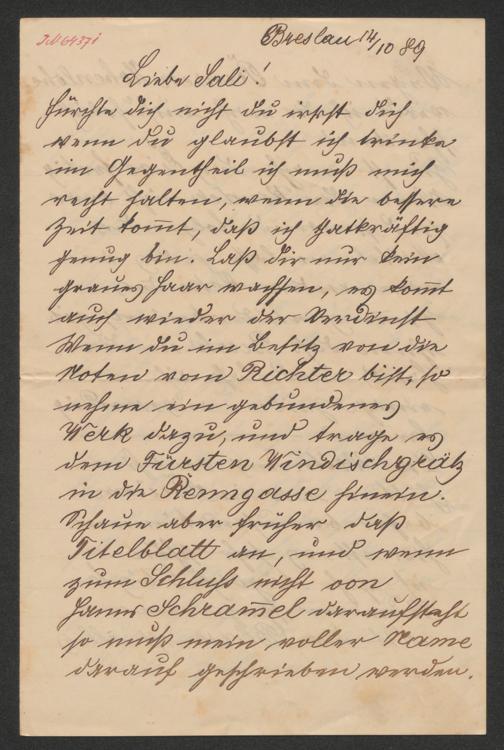 I.N 64371
Breslau 14/10 89
Liebe Sali!
Fürchte dich nicht du irrst dich
wenn du glaubst ich trinke
im Gegentheil ich muß mich
recht halten, wenn die bessere
Zeit kom̅t, daß ich thatkräftig
genug bin. Laß dir nur kein
graues Haar wachsen, es kom̅t
auch wieder der Verdienst
Wenn du im Besitz von die
Noten vom Richter bist, so
nehme ein gebundenes
Werk dazu, und trage es
dem Fürsten Windischgrätz
in die Renngasse hinein.
Schaue aber früher daß
Titelblatt an, und wenn
zum Schluß nicht von
Hanns Schram̅el daraufsteht
so muß mein voller Name
darauf geschrieben werden.